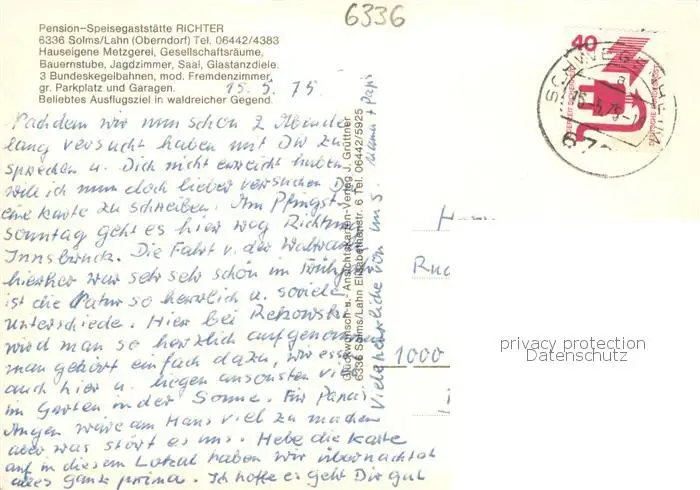 6336
Pension-Speisegaststätte RICHTER
6336 Solms/Lahn (Oberndorf) Tel. 06442/4383
Hauseigene Metzgerei, Gesellschaftsräume,
Bauernstube, Jagdzimmer, Saal, Glastanzdiele.
3 Bundeskegelbahnen, mod. Fremdenzimmer,
gr. Parkplatz und Garagen.
Beliebtes Ausflugsziel in waldreicher Gegend.
15.5.75
Nachdem wir nun schon 2 Abende
lang versucht haben mit Dir zu
sprechen u. Dich nicht erreicht haben
will ich nun doch lieber versuchen Dir
eine Karte zu schreiben. Am Pfingst-
sonntag geht es hier weg Richtung
Innsbruck. Die Fahrt v. der
hierher war sehr sehr schön im Frühjahr
ist die Natur so herrlich u. soviele
Unterschiede. Hier bei
wird man so herzlich aufgenommen
man gehört einfach dazu, wir essen
auch hier u. liegen ansonsten viel
im Garten in der Sonne. Für Papas
Augen wäre am Haus viel zu machen
aber was stört es uns. Hebe die Karte
auf in diesem Lokal haben wir übernachtet
alles ganz prima. Ich hoffe es geht Dir gut
Viele herzliche von uns. Mama + Papi
Glückwunsch- u. Ansichtskarten-Verlag J. Grüttner
6336 Solms/Lahn Elisabethenstr. 6 Tel. 06442/5925
40
DEUTSCHE BUNDESPOST
1000
privacy protection
Datenschutz